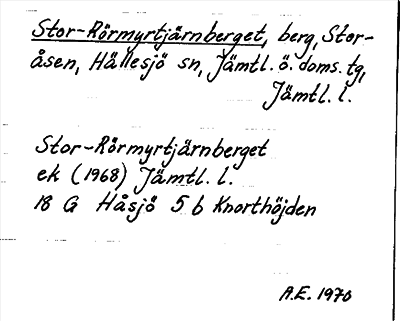 Stor-Rörmyrtjärnberget, berg, Stor-
åsen, Hällesjö sn, Jämtl. ö. doms. tg,
Jämtl. l.
Stor-Rörmyrtjärnberget
ek (1968) Jämtl. l.
18 G Håsjö 5 b Knorthöjden
A.E. 1970